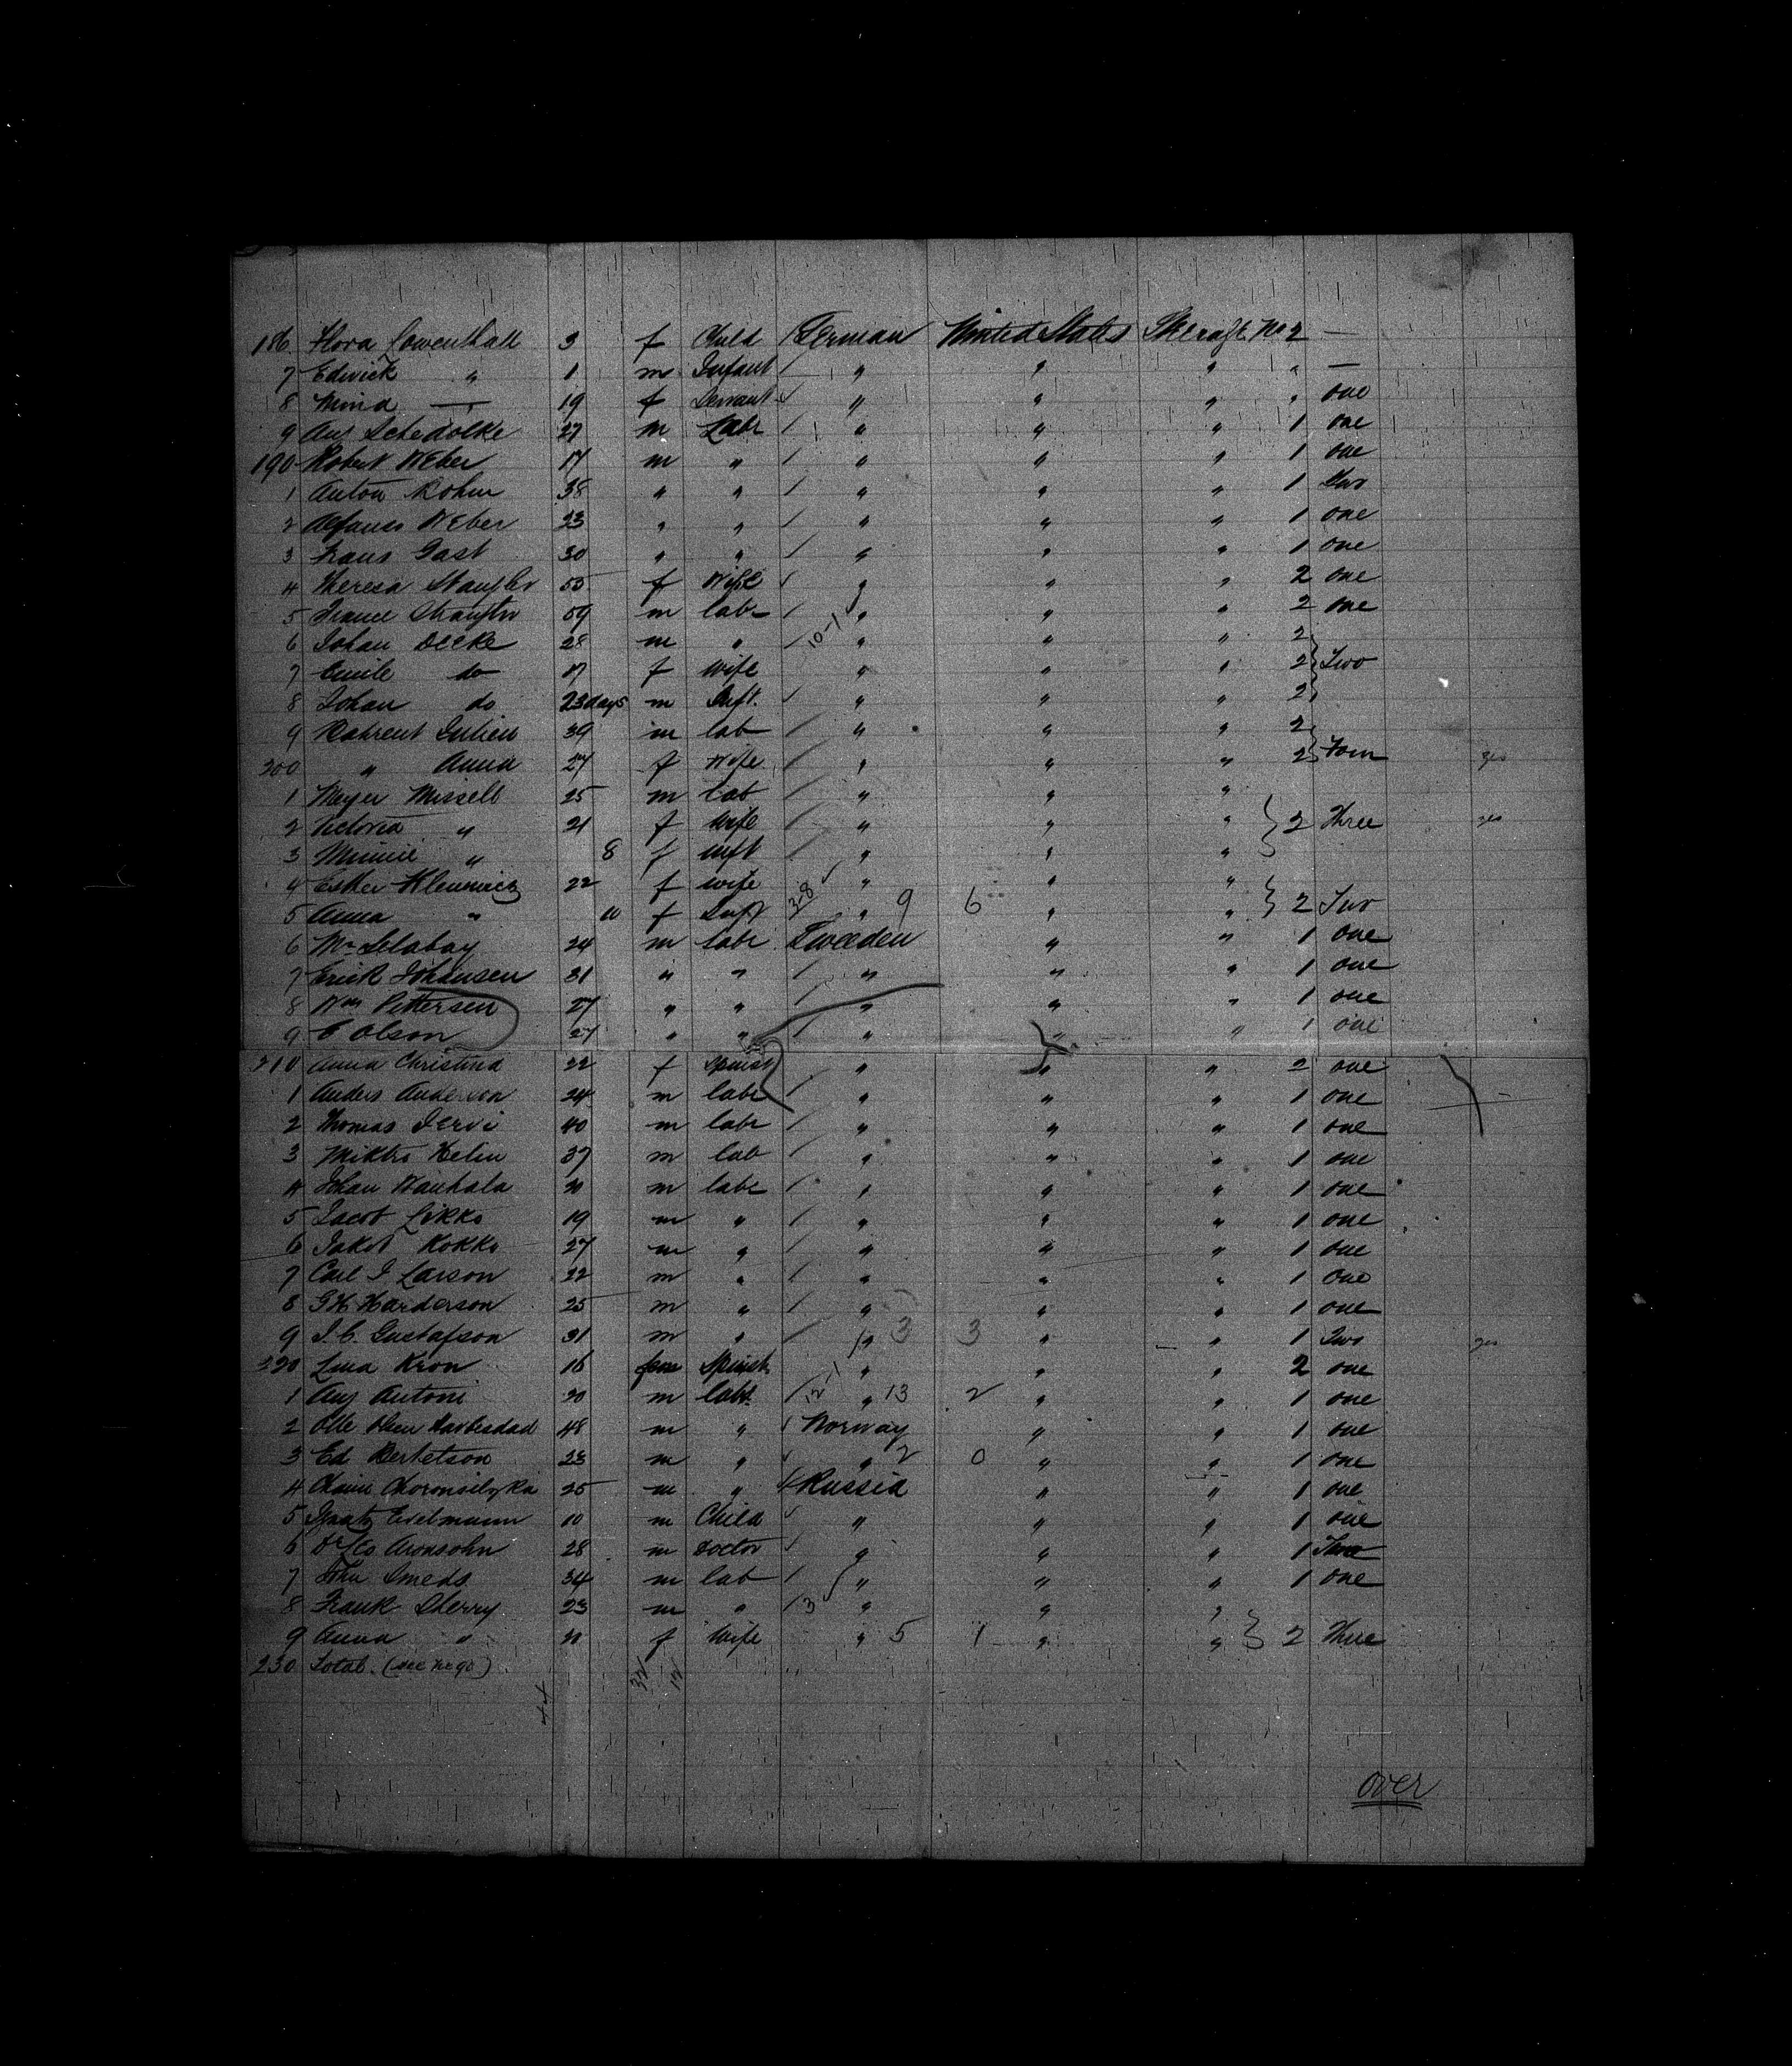 186 Flora Lowenthall 3 f Child German United States Steerage No 2 —
7 Edwick " 1 m Infant " " " " —
8 Mina — 19 f Servant " " " " one
9 Aug Schedolke 27 m Labr " " " 1 one
190 Robert Weber 17 m " " " " 1 one
1 Anton Rohm 38 " " " " " 1 two
2 Alfons Weber 23 " " " " " 1 one
3 Frans Gast 30 " " " " " 1 one
4 Theresa 55 f Wife " " " 2 one
5 59 m labr " " " 2 one
6 Johan Decke 28 m " 10-1 " " " 2
7 Emile do 17 f wife " " " 2 Two
8 Johan do 23 days m Inft. " " " 2
9 Julien 39 m lab " " " 2
200 " Anna 27 f Wife " " " 2 Four yes
1 Meyer Missell 25 m lab " " "
2 Victoria " 21 f wife " " " 2 Three yes
3 Minnie " 8 f inft " " "
4 Esther 22 f wife " " "
5 Anna " 10 f Inft 3-8 " 9 6 " " 2 Two
6 24 m labr Sweeden " " 1 one
7 Erick Johansen 31 " " " " " 1 one
8 Wm Pettersen 27 " " " " " 1 one
9 C Olson 27 " " " " " 1 one
210 Anna Christina 22 f spinst " " " 2 one
1 Anders Anderson 24 m labr " " " 1 one
2 Thomas Jervi 40 m labr " " " 1 one
3 Helin 37 m lab " " " 1 one
4 Johan Wanhala 20 m labr " " " 1 one
5 Jacob 19 m " " " " 1 one
6 Jakob Kokko 27 m " " " " 1 one
7 Carl I Larson 22 m " " " " 1 one
8 G H Harderson 25 m " " " " 1 one
9 I. C. Gustafson 31 m " " 3 3 " " 1 Two yes
220 Lina Kron 16 fem Spinst " " " 2 one
1 Aug Antoni 20 m labr. 12-1 " 13 2 " " 1 one
2 Olle Olsen 48 m " Norway " " 1 one
3 Ed Berketson 23 m " " 2 0 " " 1 one
4 25 m " Russia " " 1 one
5 Edelmann 10 m Child " " " 1 one
6 Aronsohn 28 m Doctor " " " 1
7 John Smeds 34 m lab " " " 1 one
8 Frank Sherry 23 m " 3 " " "
9 Anna " 20 f wife " 5 1 " " 2 Three
230 Total. (see no 90)
44 32 12
over